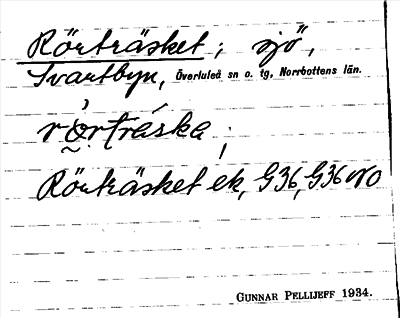 Rörträsket; sjö,
Svartbyn, Överluleå sn o. tg, Norrbottens län.
rö̀rtráska;
Rörträsket ek, G36, G36 NO
GUNNAR PELLIJEFF 1934.